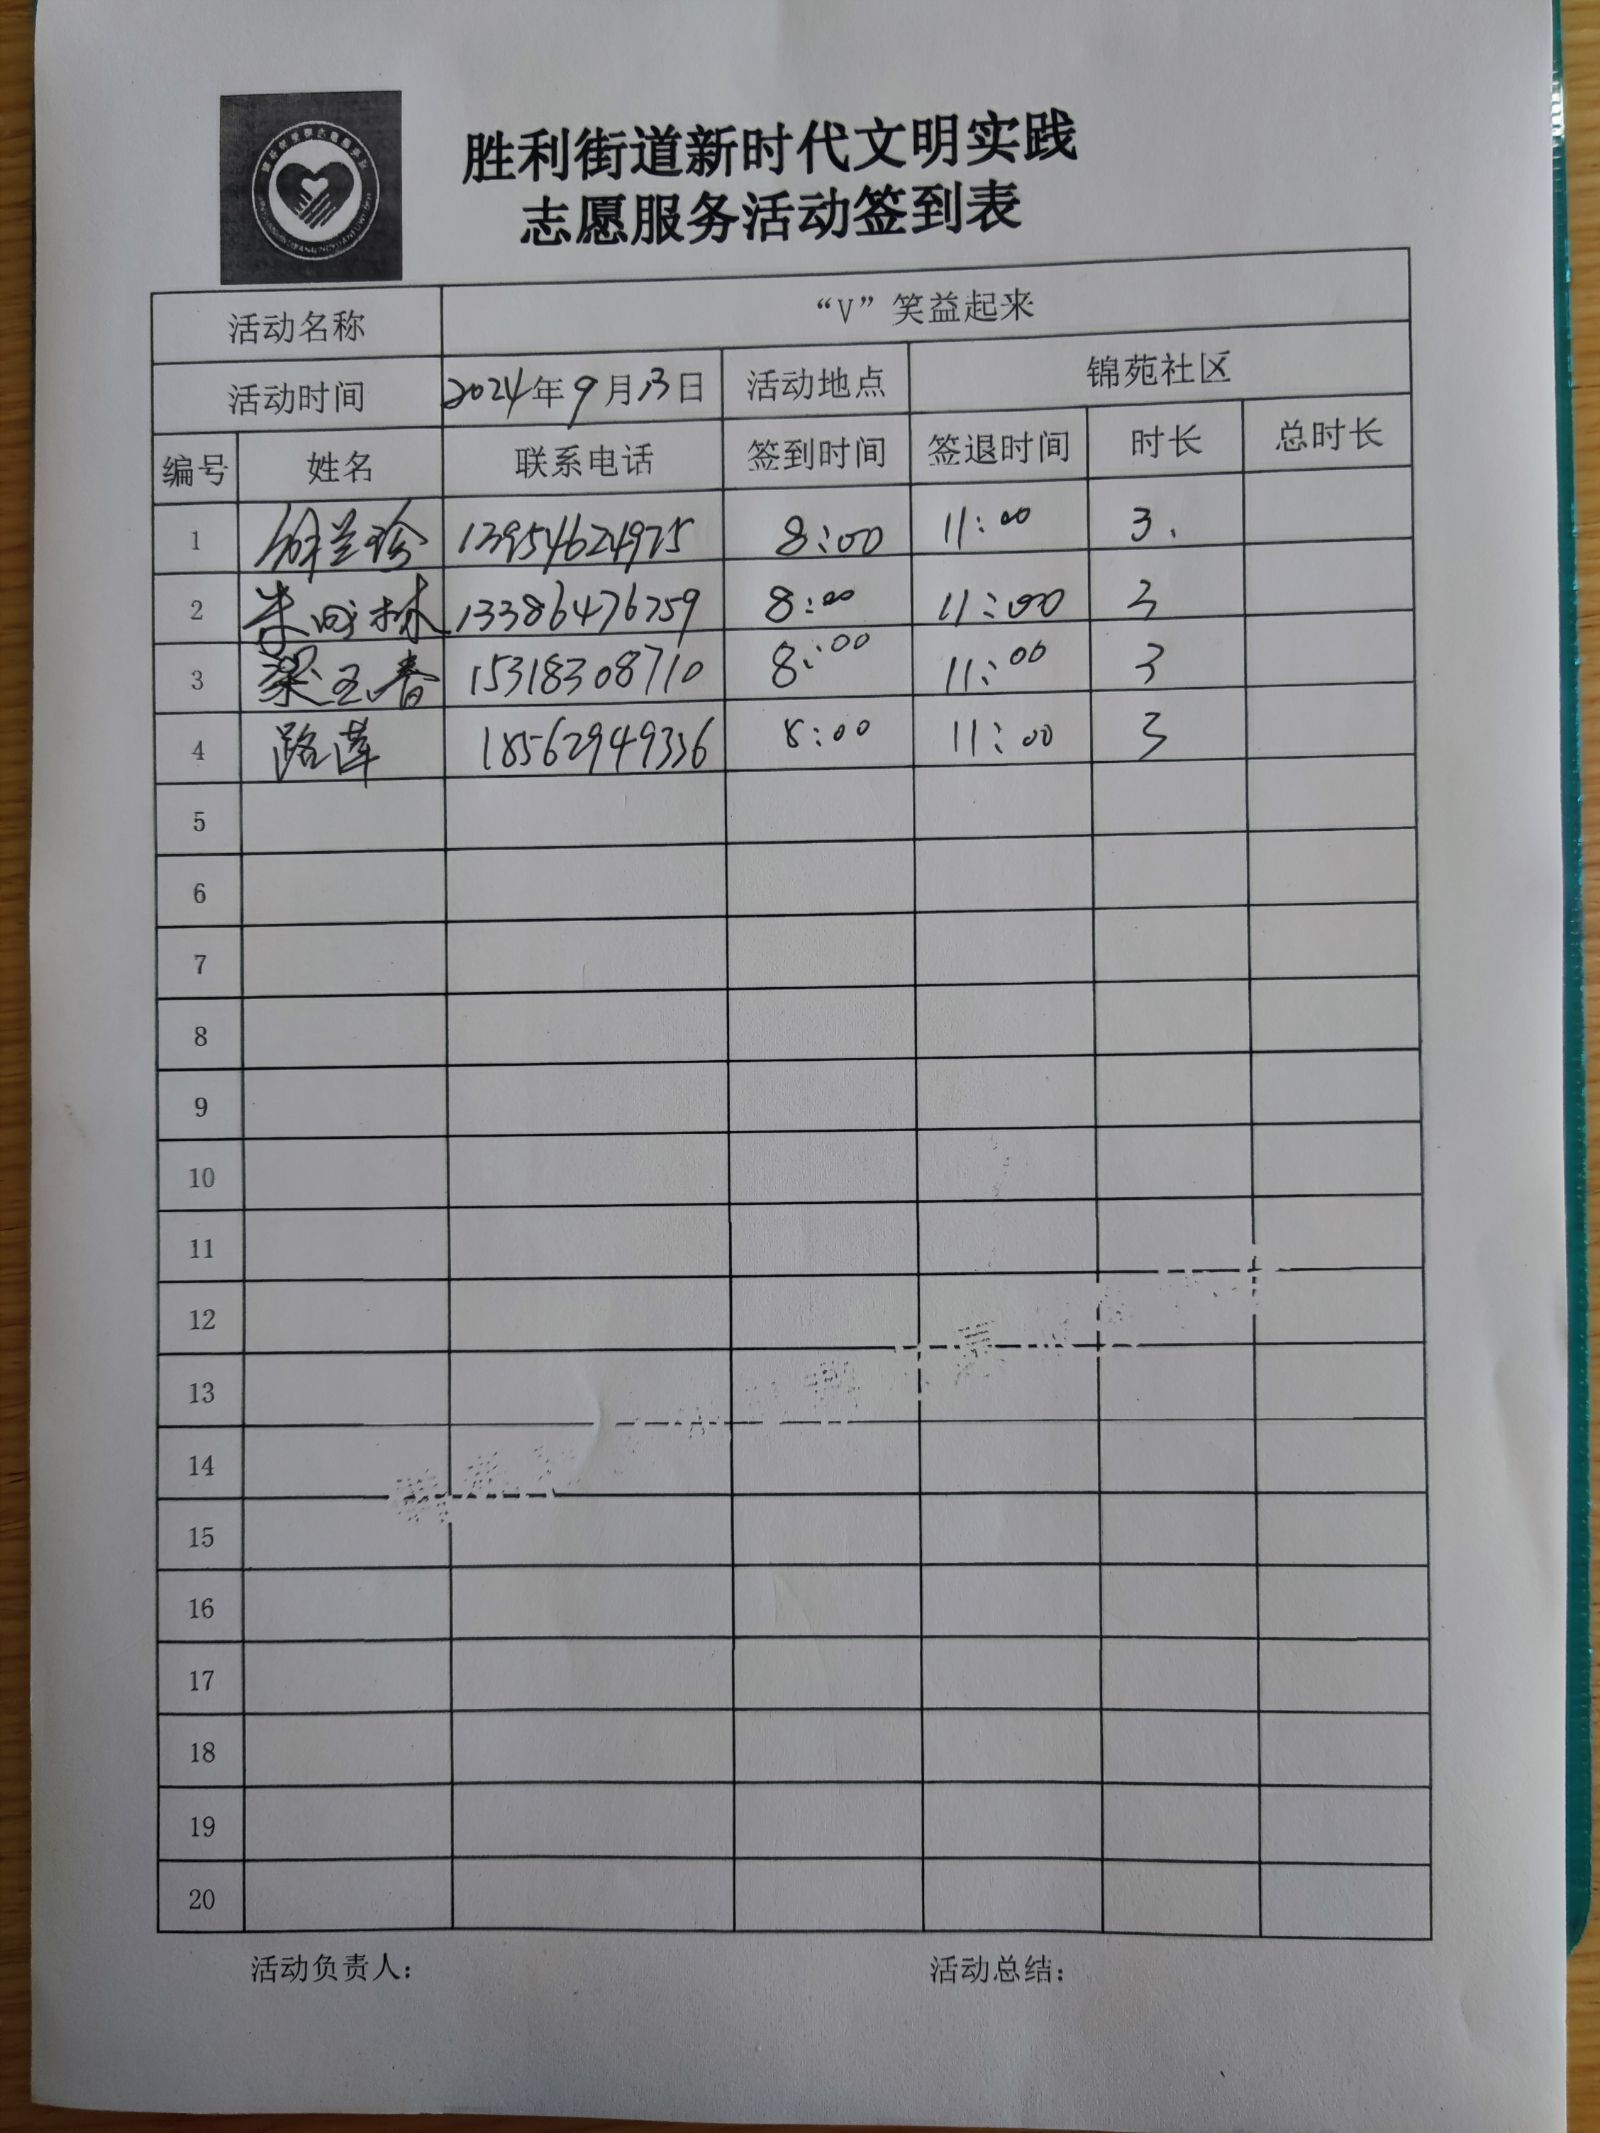 胜利街道新时代文明实践
志愿服务活动签到表
活动名称 “V”笑益起来
活动时间 2024年9月13日 活动地点 锦苑社区
编号 姓名 联系电话 签到时间 签退时间 时长 总时长
1 徐兰珍 13954624925 8:00 11:00 3.
2 朱成林 13386476759 8:00 11:00 3
3 梁玉春 15318308710 8:00 11:00 3
4 路莲 18562949336 8:00 11:00 3
5
6
7
8
9
10
11
12
13
14
15
16
17
18
19
20
活动负责人： 活动总结：